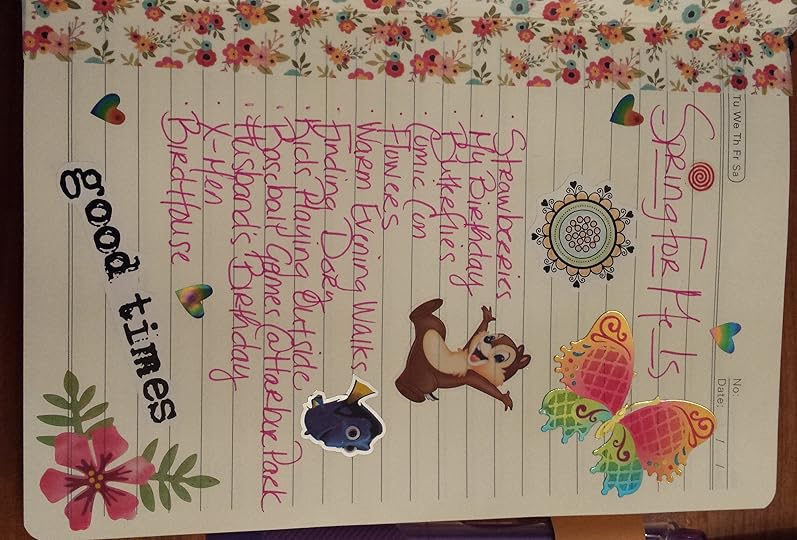 Tu We Th Fr Sa
No:
Date: / /
Spring For Me Is
· Strawberries
· My Birthday
· Butterflies
· Comic Con
· Flowers
· Warm Evening Walks
· Finding Dory
· Kids Playing Outside
· Baseball Games @ Harbor Park
· Husband's Birthday
· X-Men
· BirdHouse
good times